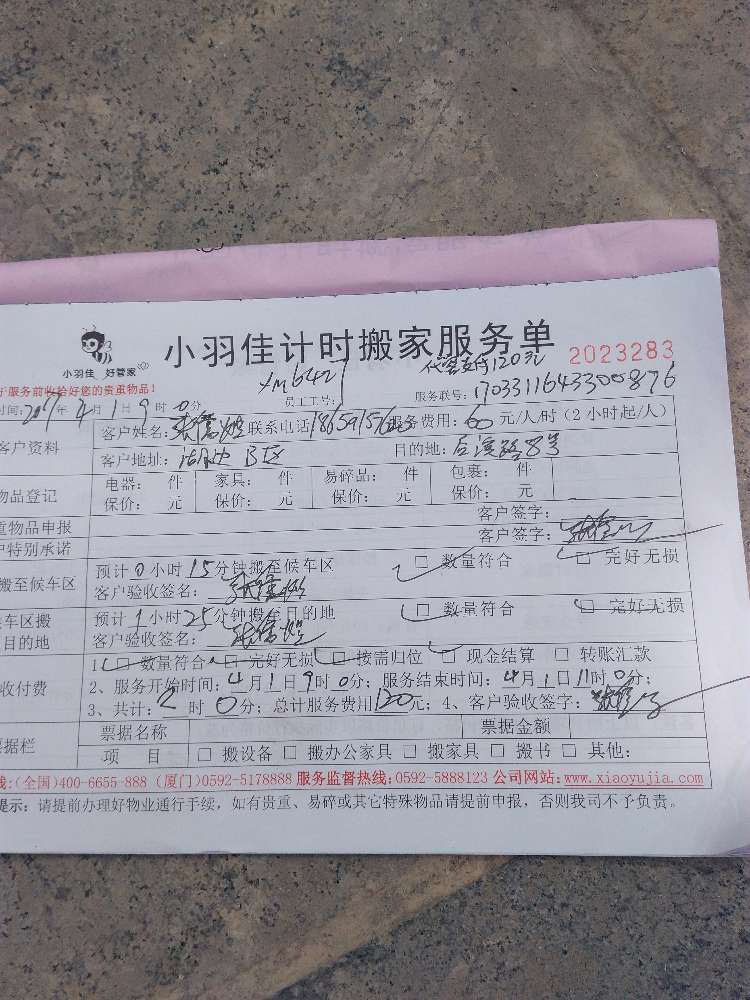 小羽佳 好管家
小羽佳计时搬家服务单
代客支付120元
2023283
于服务前收拾好您的贵重物品!
xm6427
员工工号:
服务联号: 170331164330000876
时间:2017年4月1日9时0分
客户资料
客户姓名: 联系电话 服务费用:60元/人/时(2小时起/人)
客户地址: B区 目的地:后滨路8号
物品登记
电器: 件 家具: 件 易碎品: 件 包裹: 件
保价: 元 保价: 元 保价: 元 保价: 元
重物品申报
客户签字:
户特别承诺
客户签字:
搬至候车区
预计0小时15分钟搬至候车区 □ 数量符合 □ 完好无损
客户验收签名:
车区搬
目的地
预计1小时25分钟搬至目的地 □ 数量符合 □ 完好无损
客户验收签名:
收付费
1、□ 数量符合 □ 完好无损 □ 按需归位 □ 现金结算 □ 转账汇款
2、服务开始时间:4月1日9时0分;服务结束时间:4月1日11时0分;
3、共计:2时0分;总计服务费用120元;4、客户验收签字:
据栏
票据名称 票据金额
项 目 □ 搬设备 □ 搬办公家具 □ 搬家具 □ 搬书 □ 其他:
线:(全国)400-6655-888 (厦门)0592-5178888 服务监督热线:0592-5888123 公司网站:www.xiaoyujia.com
提示:请提前办理好物业通行手续,如有贵重、易碎或其它特殊物品请提前申报,否则我司不予负责。